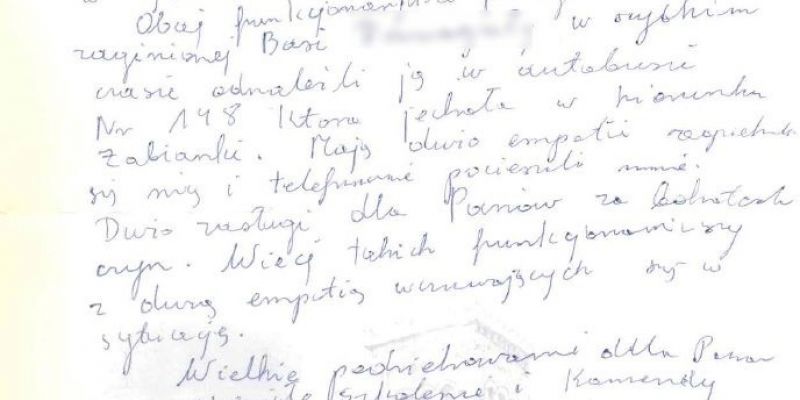 Obaj funkcjonariusze
zaginionej Basi w szybkim
czasie odnaleźli ją w autobusie
Nr 148 która jechała w kierunku
Żabianki. Mają dużo empatii
się nią i telefonicznie pocieszali mnie.
Dużo zasługi dla Panów za bohaterski
czyn. Więcej takich funkcjonariuszy
z dużą empatią wczuwających się w
sytuację.
Wielkie podziękowanie dla Pana
Szkolenie i Komendy